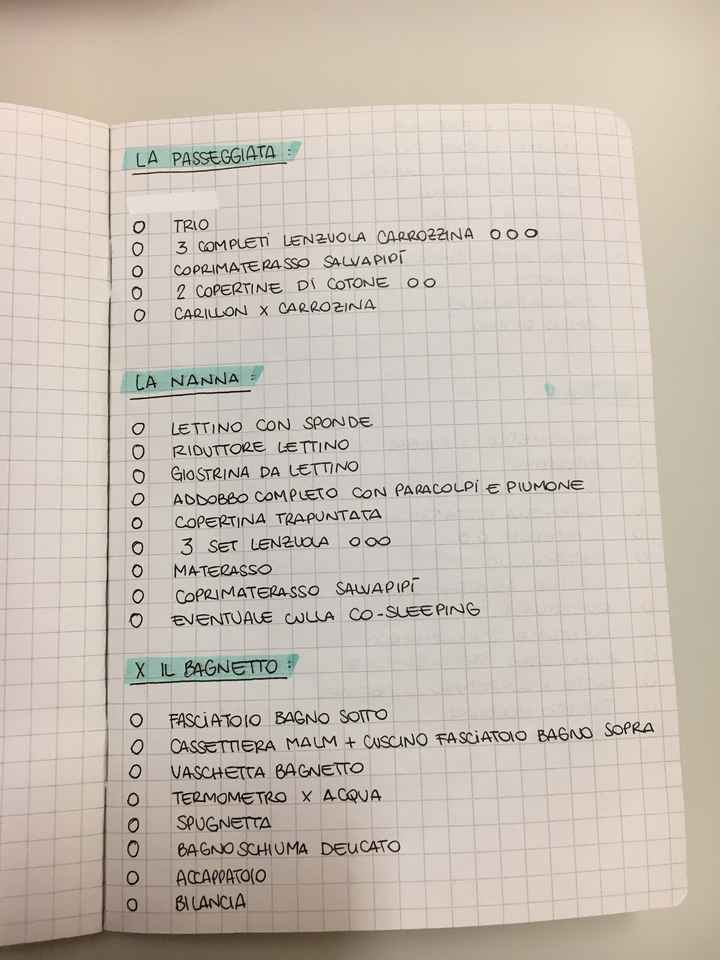 LA PASSEGGIATA :
O TRIO
O 3 COMPLETI LENZUOLA CARROZZINA O O O
O COPRIMATERASSO SALVAPIPÍ
O 2 COPERTINE DI COTONE O O
O CARILLON X CARROZINA
LA NANNA :
O LETTINO CON SPONDE
O RIDUTTORE LETTINO
O GIOSTRINA DA LETTINO
O ADDOBBO COMPLETO CON PARACOLPÍ E PIUMONE
O COPERTINA TRAPUNTATA
O 3 SET LENZUOLA O O O
O MATERASSO
O COPRIMATERASSO SALVAPIPÍ
O EVENTUALE CULLA CO-SLEEPING
X IL BAGNETTO :
O FASCIATOIO BAGNO SOTTO
O CASSETTIERA MALM + CUSCINO FASCIATOIO BAGNO SOPRA
O VASCHETTA BAGNETTO
O TERMOMETRO X ACQUA
O SPUGNETTA
O BAGNO SCHIUMA DELICATO
O ACCAPPATOIO
O BILANCIA